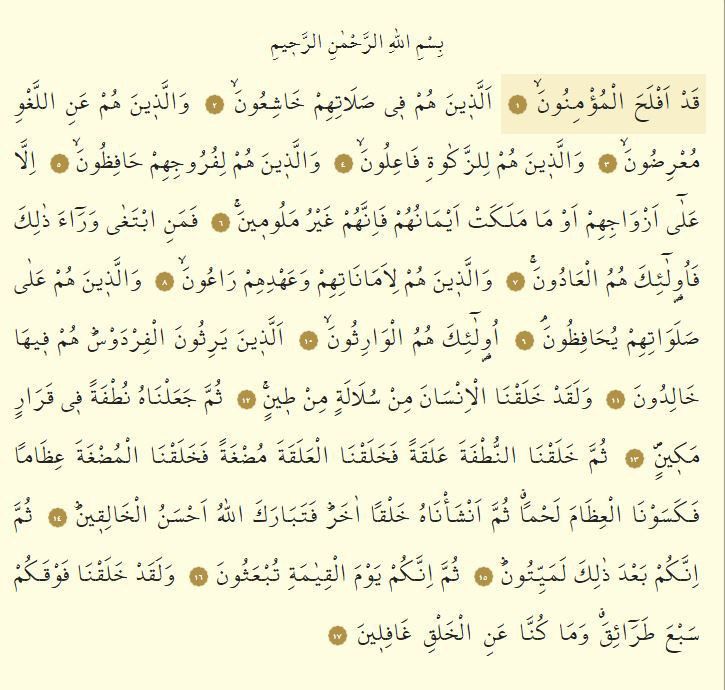 بِسْمِ اللّٰهِ الرَّحْمٰنِ الرَّحِيمِ
قَدْ اَفْلَحَ الْمُؤْمِنُونَۙ ﴿١﴾ اَلَّذِينَ هُمْ فِى صَلَاتِهِمْ خَاشِعُونَۙ ﴿٢﴾ وَالَّذِينَ هُمْ عَنِ اللَّغْوِ
مُعْرِضُونَۙ ﴿٣﴾ وَالَّذِينَ هُمْ لِلزَّكٰوةِ فَاعِلُونَۙ ﴿٤﴾ وَالَّذِينَ هُمْ لِفُرُوجِهِمْ حَافِظُونَۙ ﴿٥﴾ اِلَّا
عَلٰٓى اَزْوَاجِهِمْ اَوْ مَا مَلَكَتْ اَيْمَانُهُمْ فَاِنَّهُمْ غَيْرُ مَلُومِينَۚ ﴿٦﴾ فَمَنِ ابْتَغٰى وَرَٓاءَ ذٰلِكَ
فَاُو۬لٰٓئِكَ هُمُ الْعَادُونَۚ ﴿٧﴾ وَالَّذِينَ هُمْ لِاَمَانَاتِهِمْ وَعَهْدِهِمْ رَاعُونَۙ ﴿٨﴾ وَالَّذِينَ هُمْ عَلٰى
صَلَوَاتِهِمْ يُحَافِظُونَۢ ﴿٩﴾ اُو۬لٰٓئِكَ هُمُ الْوَارِثُونَۙ ﴿١٠﴾ اَلَّذِينَ يَرِثُونَ الْفِرْدَوْسَۜ هُمْ فِيهَا
خَالِدُونَ ﴿١١﴾ وَلَقَدْ خَلَقْنَا الْاِنْسَانَ مِنْ سُلَالَةٍ مِنْ طِينٍۚ ﴿١٢﴾ ثُمَّ جَعَلْنَاهُ نُطْفَةً فِى قَرَارٍ
مَكِينٍۖ ﴿١٣﴾ ثُمَّ خَلَقْنَا النُّطْفَةَ عَلَقَةً فَخَلَقْنَا الْعَلَقَةَ مُضْغَةً فَخَلَقْنَا الْمُضْغَةَ عِظَامًا
فَكَسَوْنَا الْعِظَامَ لَحْمًاۗ ثُمَّ اَنْشَأْنَاهُ خَلْقًا اٰخَرَۜ فَتَبَارَكَ اللّٰهُ اَحْسَنُ الْخَالِقِينَۜ ﴿١٤﴾ ثُمَّ
اِنَّكُمْ بَعْدَ ذٰلِكَ لَمَيِّتُونَۜ ﴿١٥﴾ ثُمَّ اِنَّكُمْ يَوْمَ الْقِيٰمَةِ تُبْعَثُونَ ﴿١٦﴾ وَلَقَدْ خَلَقْنَا فَوْقَكُمْ
سَبْعَ طَرَٓائِقَۗ وَمَا كُنَّا عَنِ الْخَلْقِ غَافِلِينَ ﴿١٧﴾